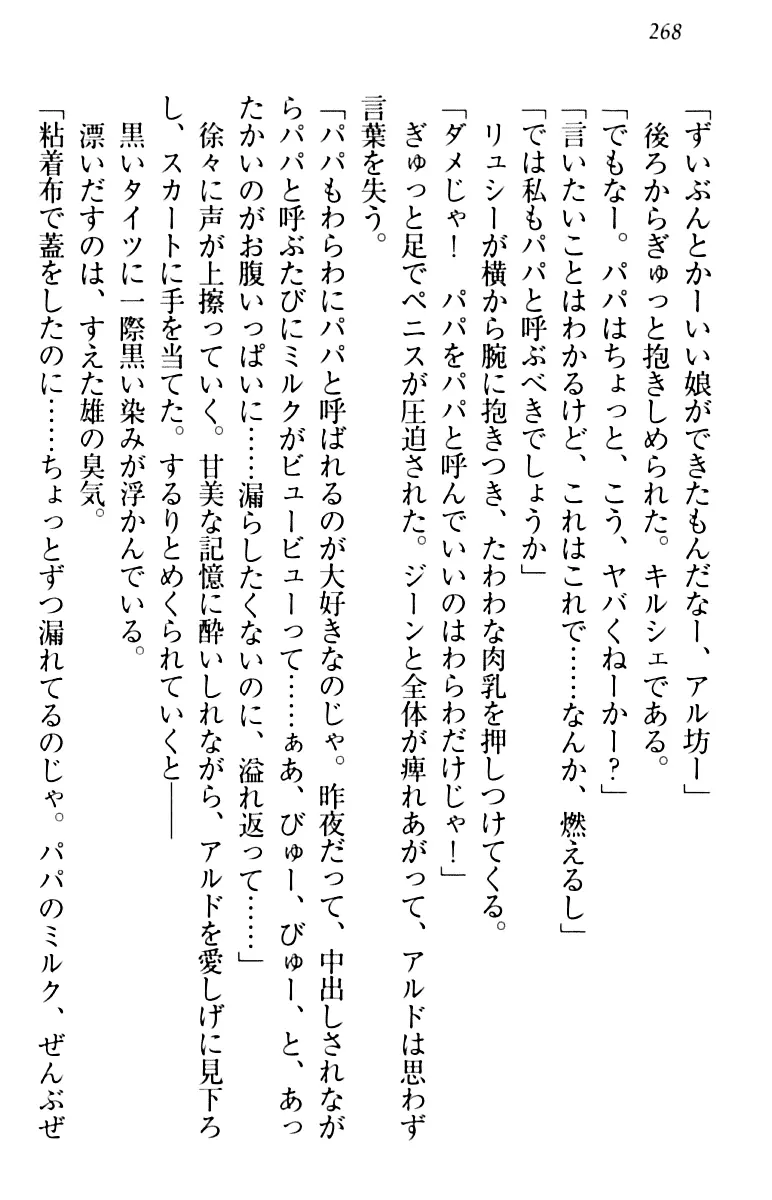 268
「ずいぶんとかーいい娘ができたもんだなー、アル坊ー」
後ろからぎゅっと抱きしめられた。キルシェである。
「でもなー。パパはちょっと、こう、ヤバくねーかー?」
「言いたいことはわかるけど、これはこれで……なんか、燃えるし」
「では私もパパと呼ぶべきでしょうか」
リュシーが横から腕に抱きつき、たわわな肉乳を押しつけてくる。
「ダメじゃ! パパをパパと呼んでいいのはわらわだけじゃ!」
ぎゅっと足でペニスが圧迫された。ジーンと全体が痺れあがって、アルドは思わず
言葉を失う。
「パパもわらわにパパと呼ばれるのが大好きなのじゃ。昨夜だって、中出しされなが
らパパと呼ぶたびにミルクがビュービューって……ぁあ、びゅー、びゅー、と、あっ
たかいのがお腹いっぱいに……漏らしたくないのに、溢れ返って……」
徐々に声が上擦っていく。甘美な記憶に酔いしれながら、アルドを愛しげに見下ろ
し、スカートに手を当てた。するりとめくられていくと――
黒いタイツに一際黒い染みが浮かんでいる。
漂いだすのは、すえた雄の臭気。
「粘着布で蓋をしたのに……ちょっとずつ漏れてるのじゃ。パパのミルク、ぜんぶぜ